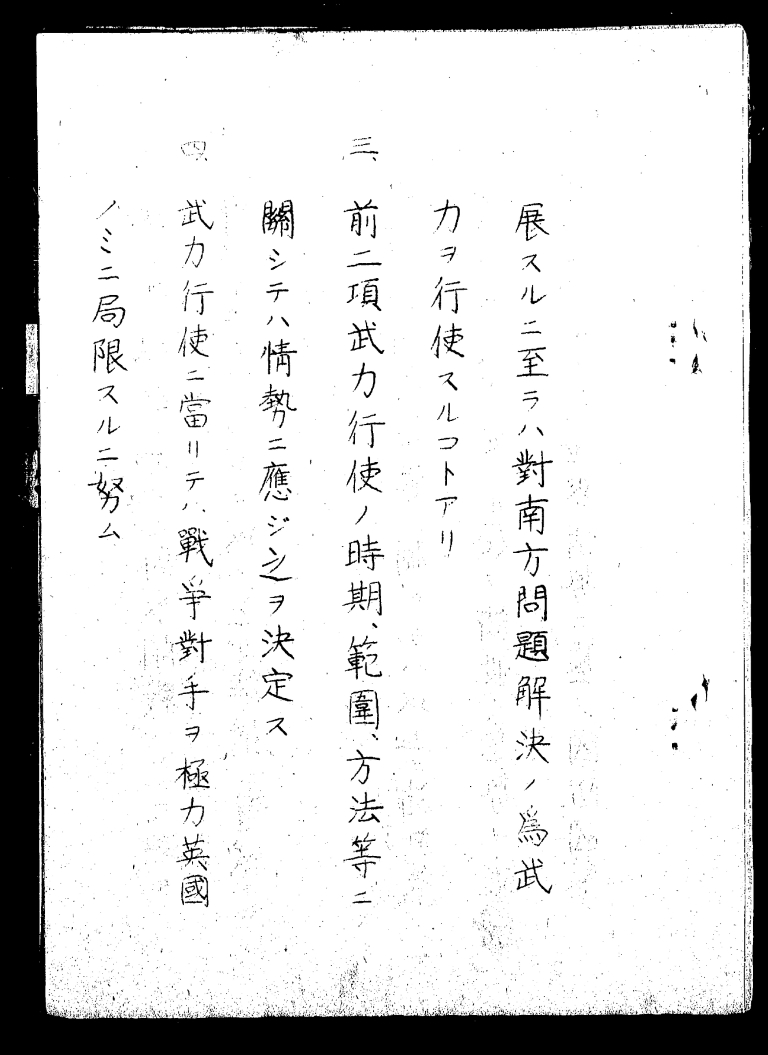 展スルニ至ラハ對南方問題解決ノ爲武
力ヲ行使スルコトアリ
三、前二項武力行使ノ時期、範圍、方法等ニ
關シテハ情勢ニ應ジ之ヲ決定ス
四、武力行使ニ當リテハ戰爭對手ヲ極力英國
ノミニ局限スルニ努ム